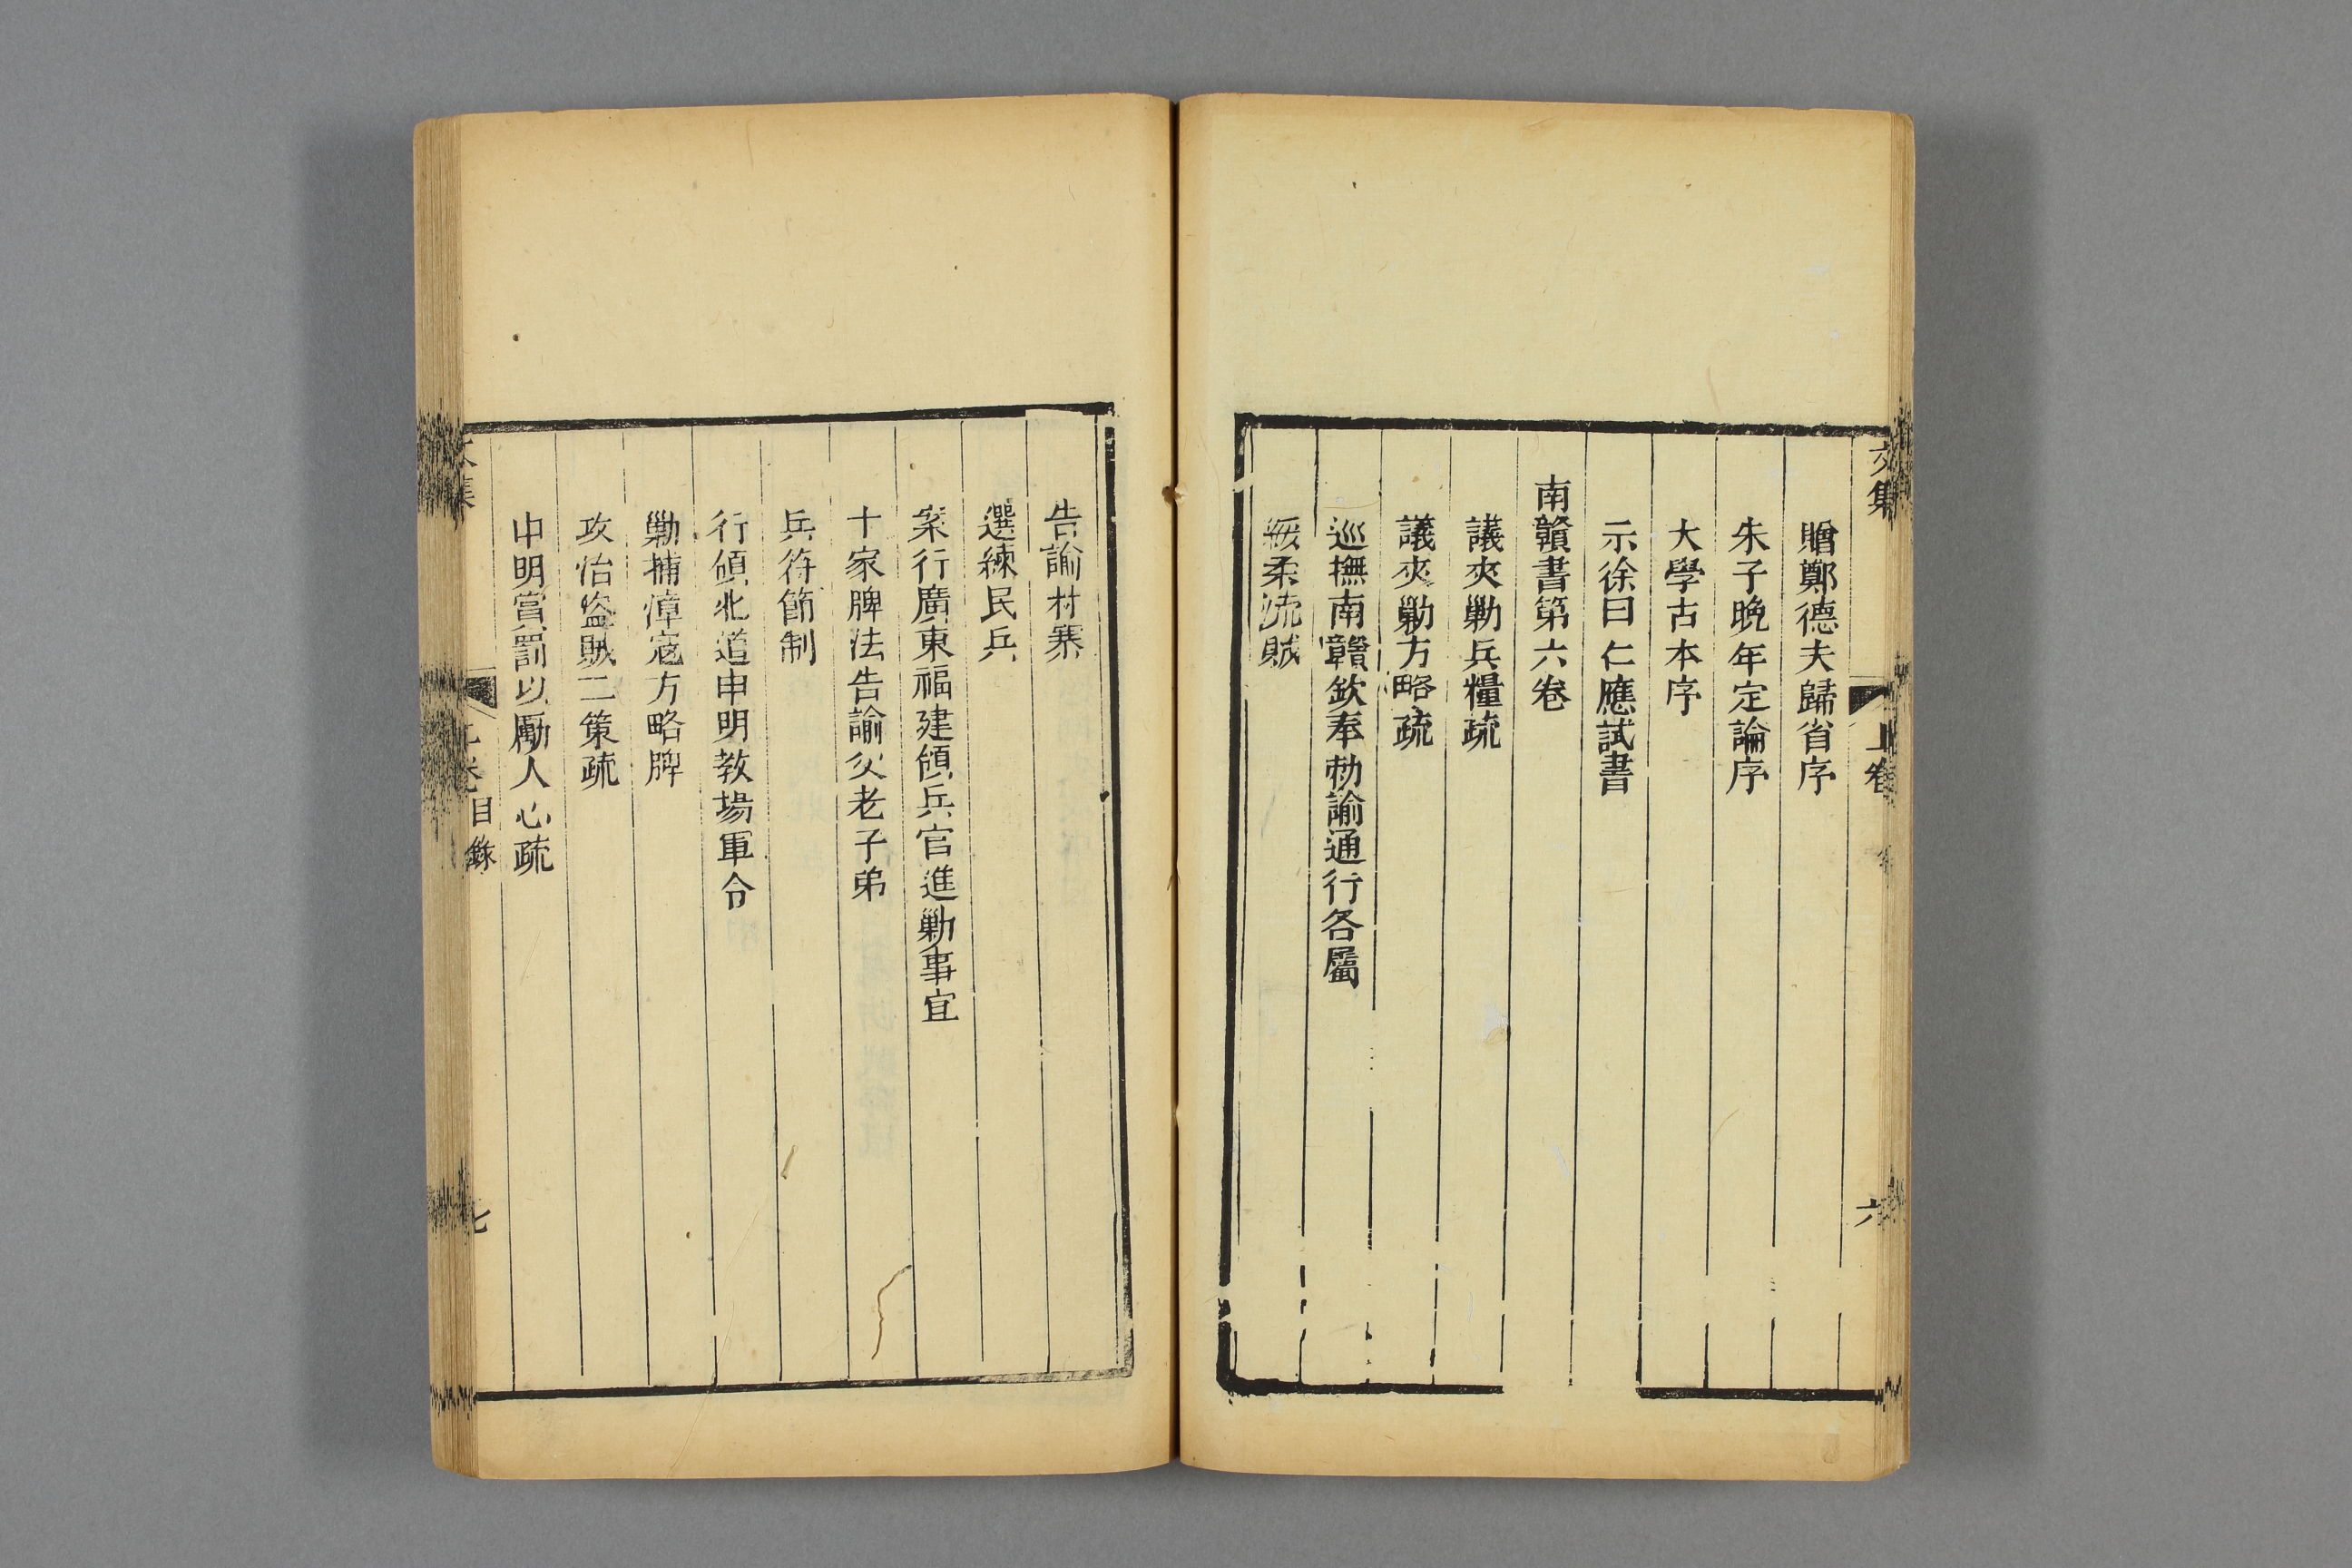 文集
上卷
六
贈鄭德夫歸省序
朱子晩年定論序
大學古本序
示徐曰仁應試書
南贛書第六卷
議夾勦兵糧疏
議夾勦方略疏
巡撫南贛欽奉勅諭通行各屬
綏柔流賊
告諭村寨
選練民兵
案行廣東福建領兵官進勦事宜
十家牌法告諭父老子弟
兵符節制
行領北道申明教場軍令
勦捕漳寇方略牌
攻治盜賊二策疏
申明賞罰以勵人心疏
文集
上卷目錄
七